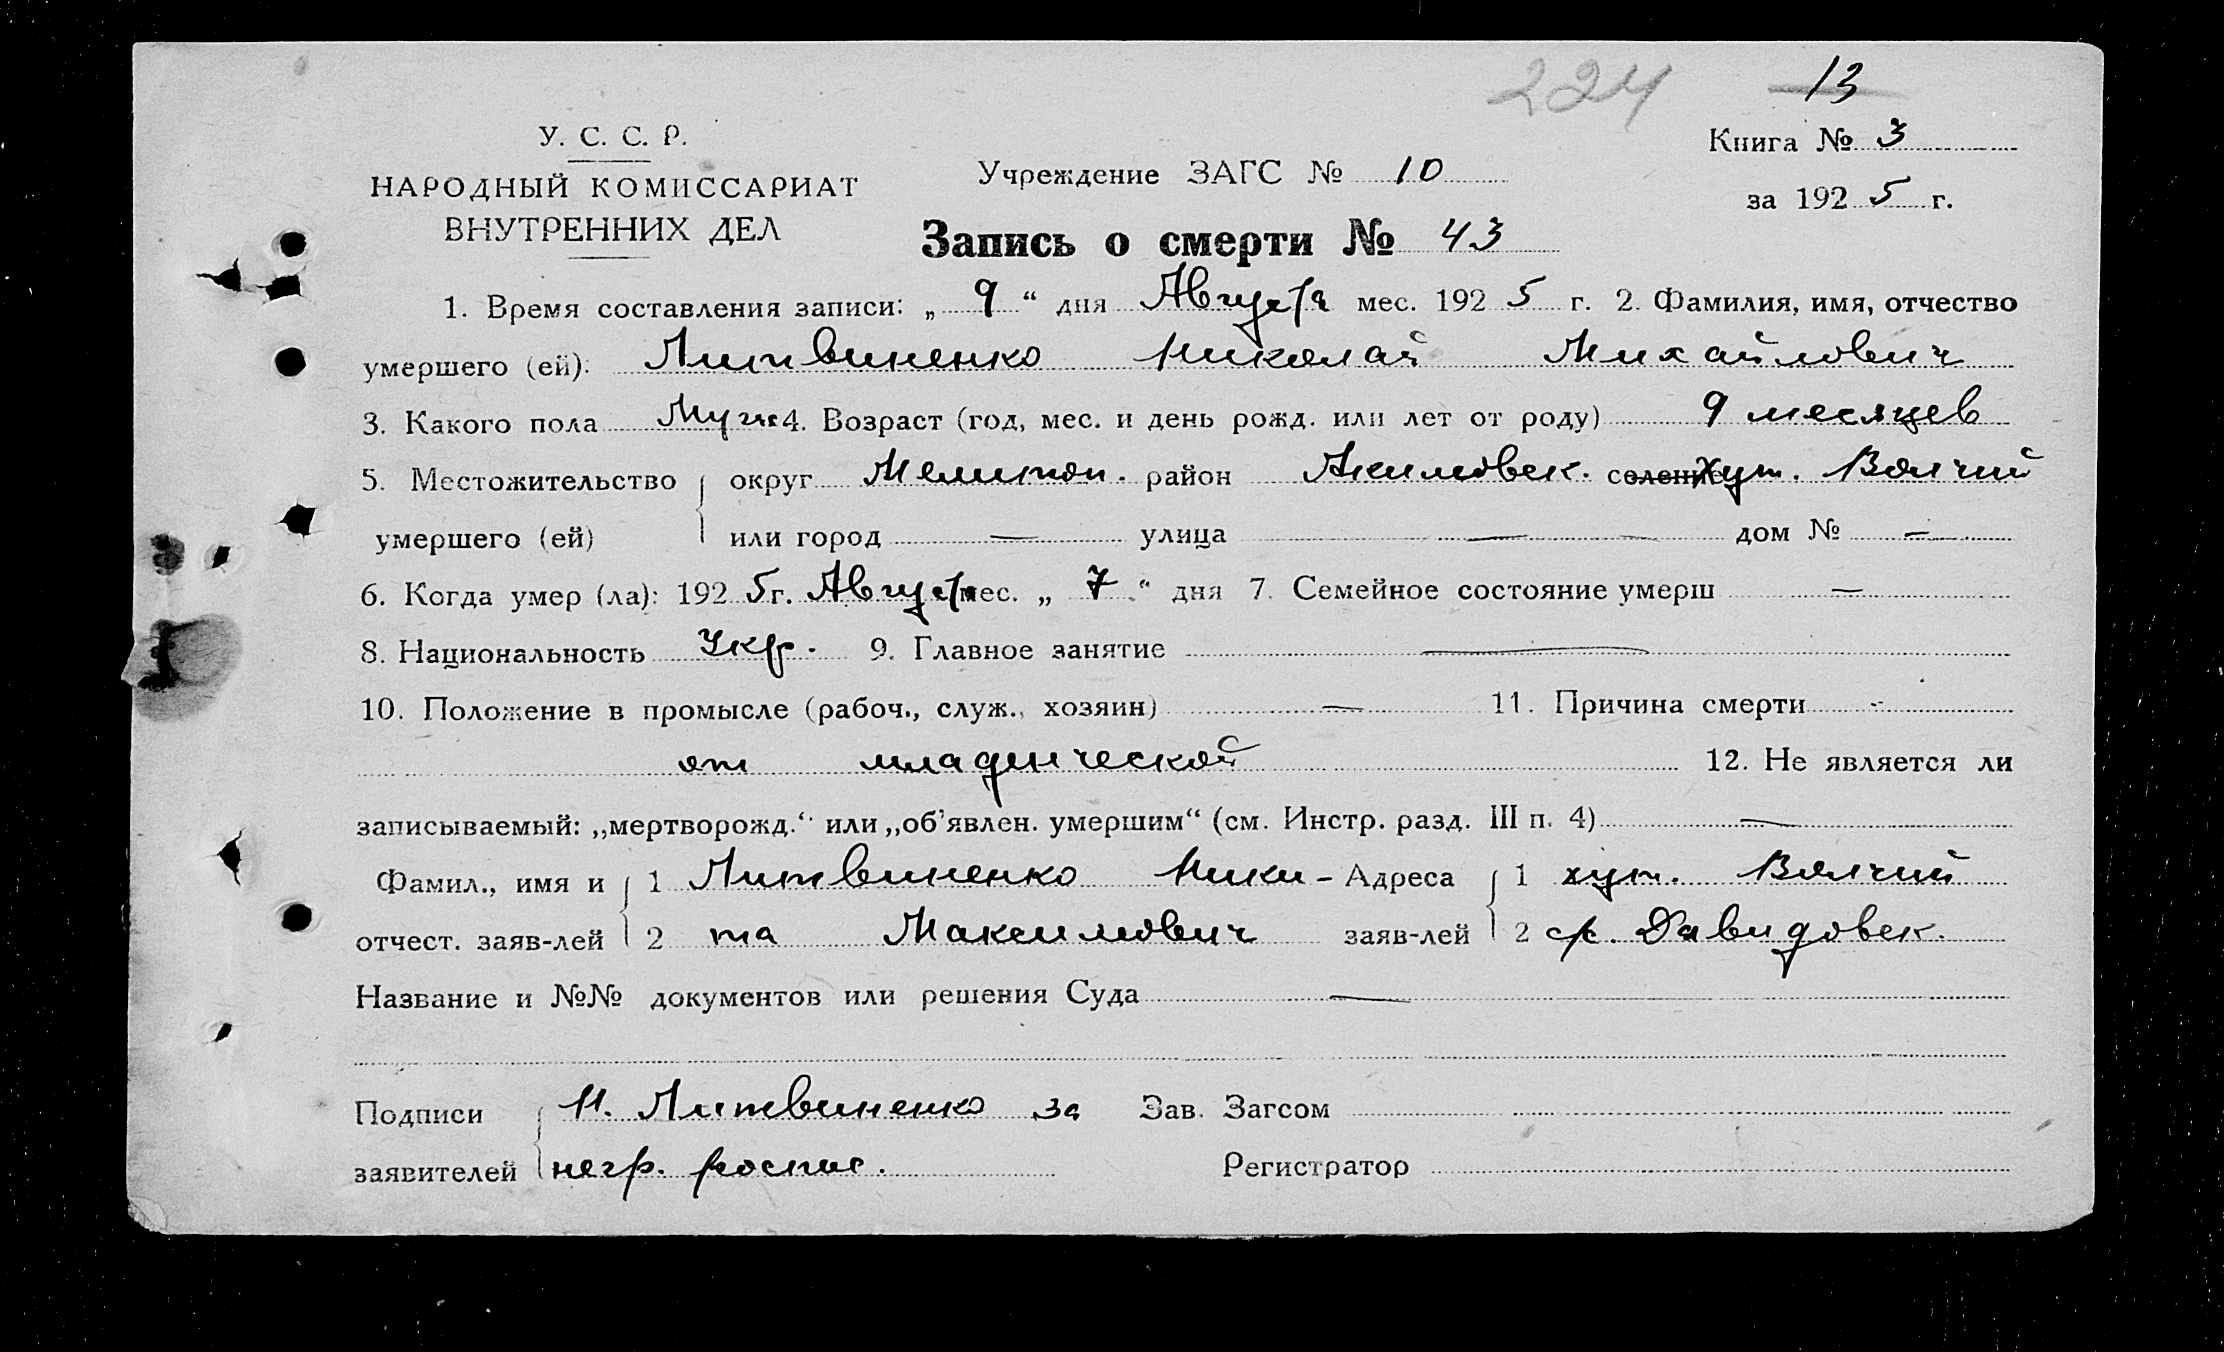 224 13
У. С. С. Р.
НАРОДНЫЙ КОМИССАРИАТ
ВНУТРЕННИХ ДЕЛ
Учреждение ЗАГС № 10
Книга № 3
за 1925 г.
Запись о смерти № 43
1. Время составления записи: „ 9 “ дня Августа мес. 1925 г. 2. Фамилия, имя, отчество
умершего (ей): Литвиненко Николай Михайлович
3. Какого пола Муж 4. Возраст (год, мес. и день рожд. или лет от роду) 9 месяцев
5. Местожительство округ Мелитоп. район Акимовск. селение хут. Волчий
умершего (ей) или город — улица — дом № —
6. Когда умер (ла): 1925 г. Августа мес. „ 7 “ дня 7. Семейное состояние умерш —
8. Национальность Укр. 9. Главное занятие —
10. Положение в промысле (рабоч., служ., хозяин) — 11. Причина смерти -
от младенческой 12. Не является ли
записываемый: „мертворожд.“ или „об'явлен. умершим“ (см. Инстр. разд. III п. 4) —
Фамил., имя и 1 Литвиненко Ники- Адреса 1 хут. Волчий
отчест. заяв-лей 2 та Максимович заяв-лей 2 с/с. Давидовск.
Название и №№ документов или решения Суда —
Подписи Н. Литвиненко за Зав. Загсом
заявителей негр. роспис. Регистратор